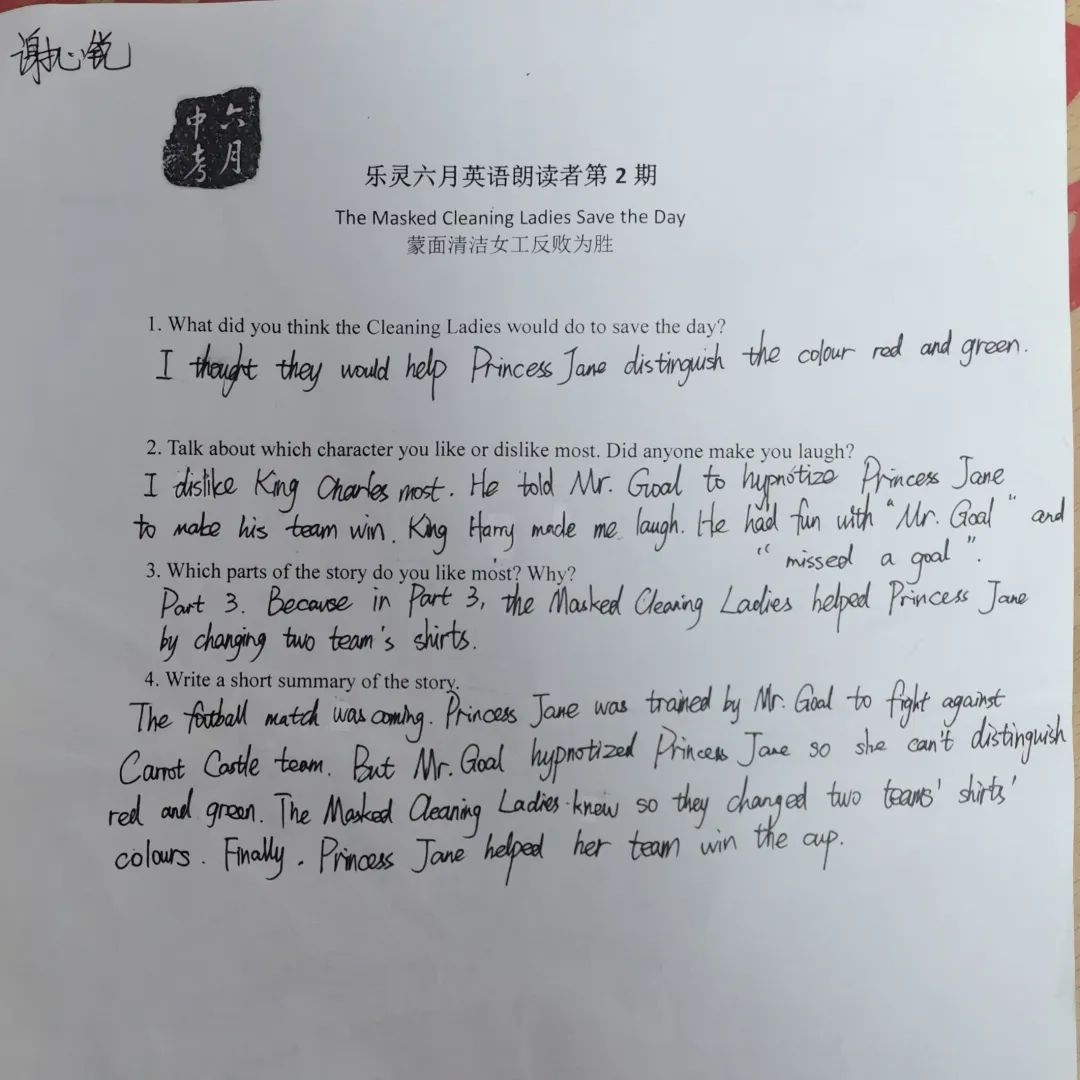 谢心锐
六月
中考
乐灵六月英语朗读者第 2 期
The Masked Cleaning Ladies Save the Day
蒙面清洁女工反败为胜
1. What did you think the Cleaning Ladies would do to save the day?
I thought they would help Princess Jane distinguish the colour red and green.
2. Talk about which character you like or dislike most. Did anyone make you laugh?
I dislike King Charles most. He told Mr. Goal to hypnotize Princess Jane
to make his team win. King Harry made me laugh. He had fun with "Mr. Goal" and
"missed a goal".
3. Which parts of the story do you like most? Why?
Part 3. Because in Part 3, the Masked Cleaning Ladies helped Princess Jane
by changing two team's shirts.
4. Write a short summary of the story.
The football match was coming. Princess Jane was trained by Mr. Goal to fight against
Carrot Castle team. But Mr. Goal hypnotized Princess Jane so she can't distinguish
red and green. The Masked Cleaning Ladies knew so they changed two teams' shirts'
colours. Finally, Princess Jane helped her team win the cup.